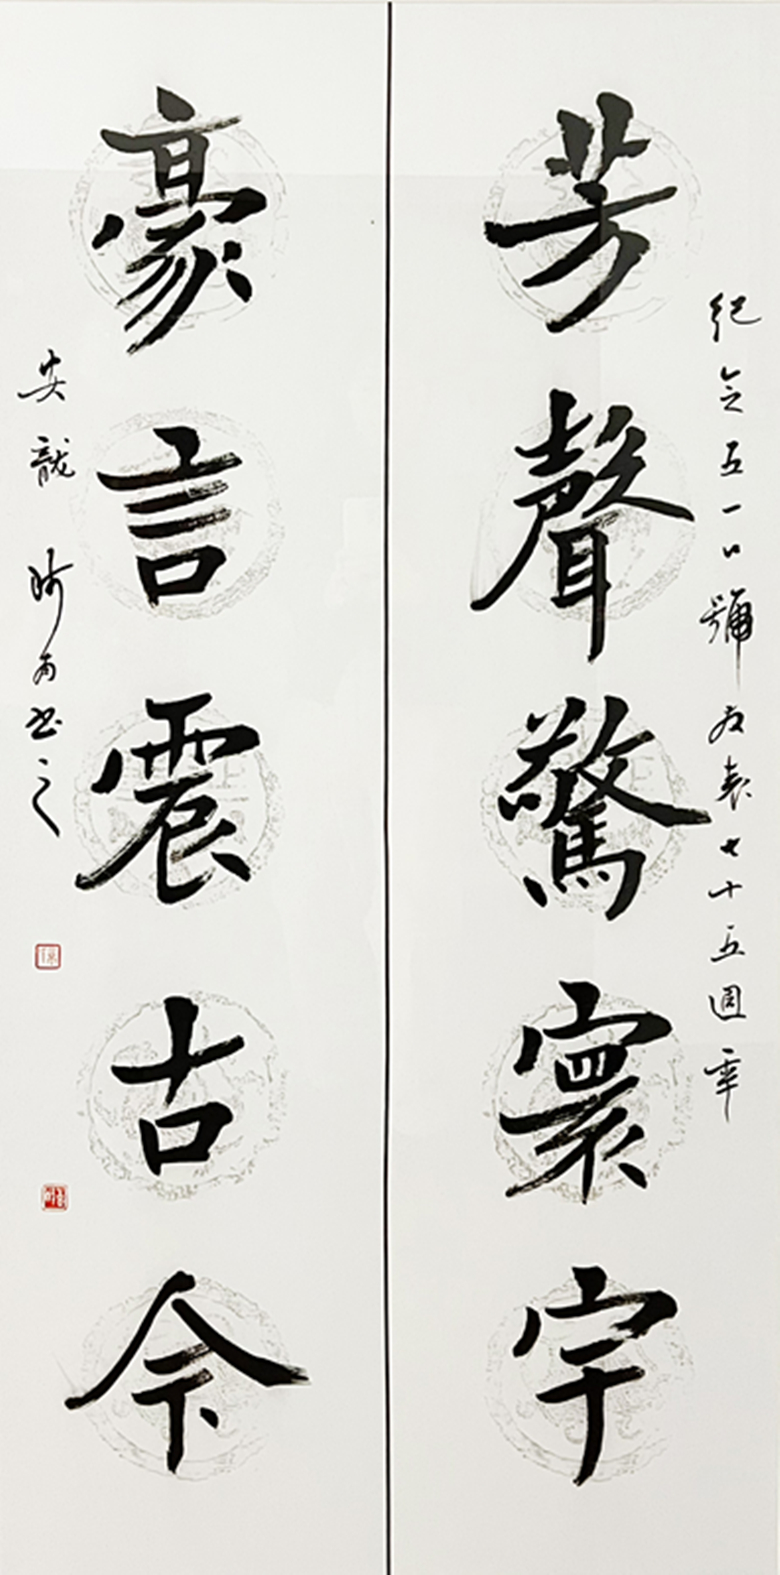 紀念五一口號發表七十五週年
芳聲驚寰宇
豪言震古今
龍 书之